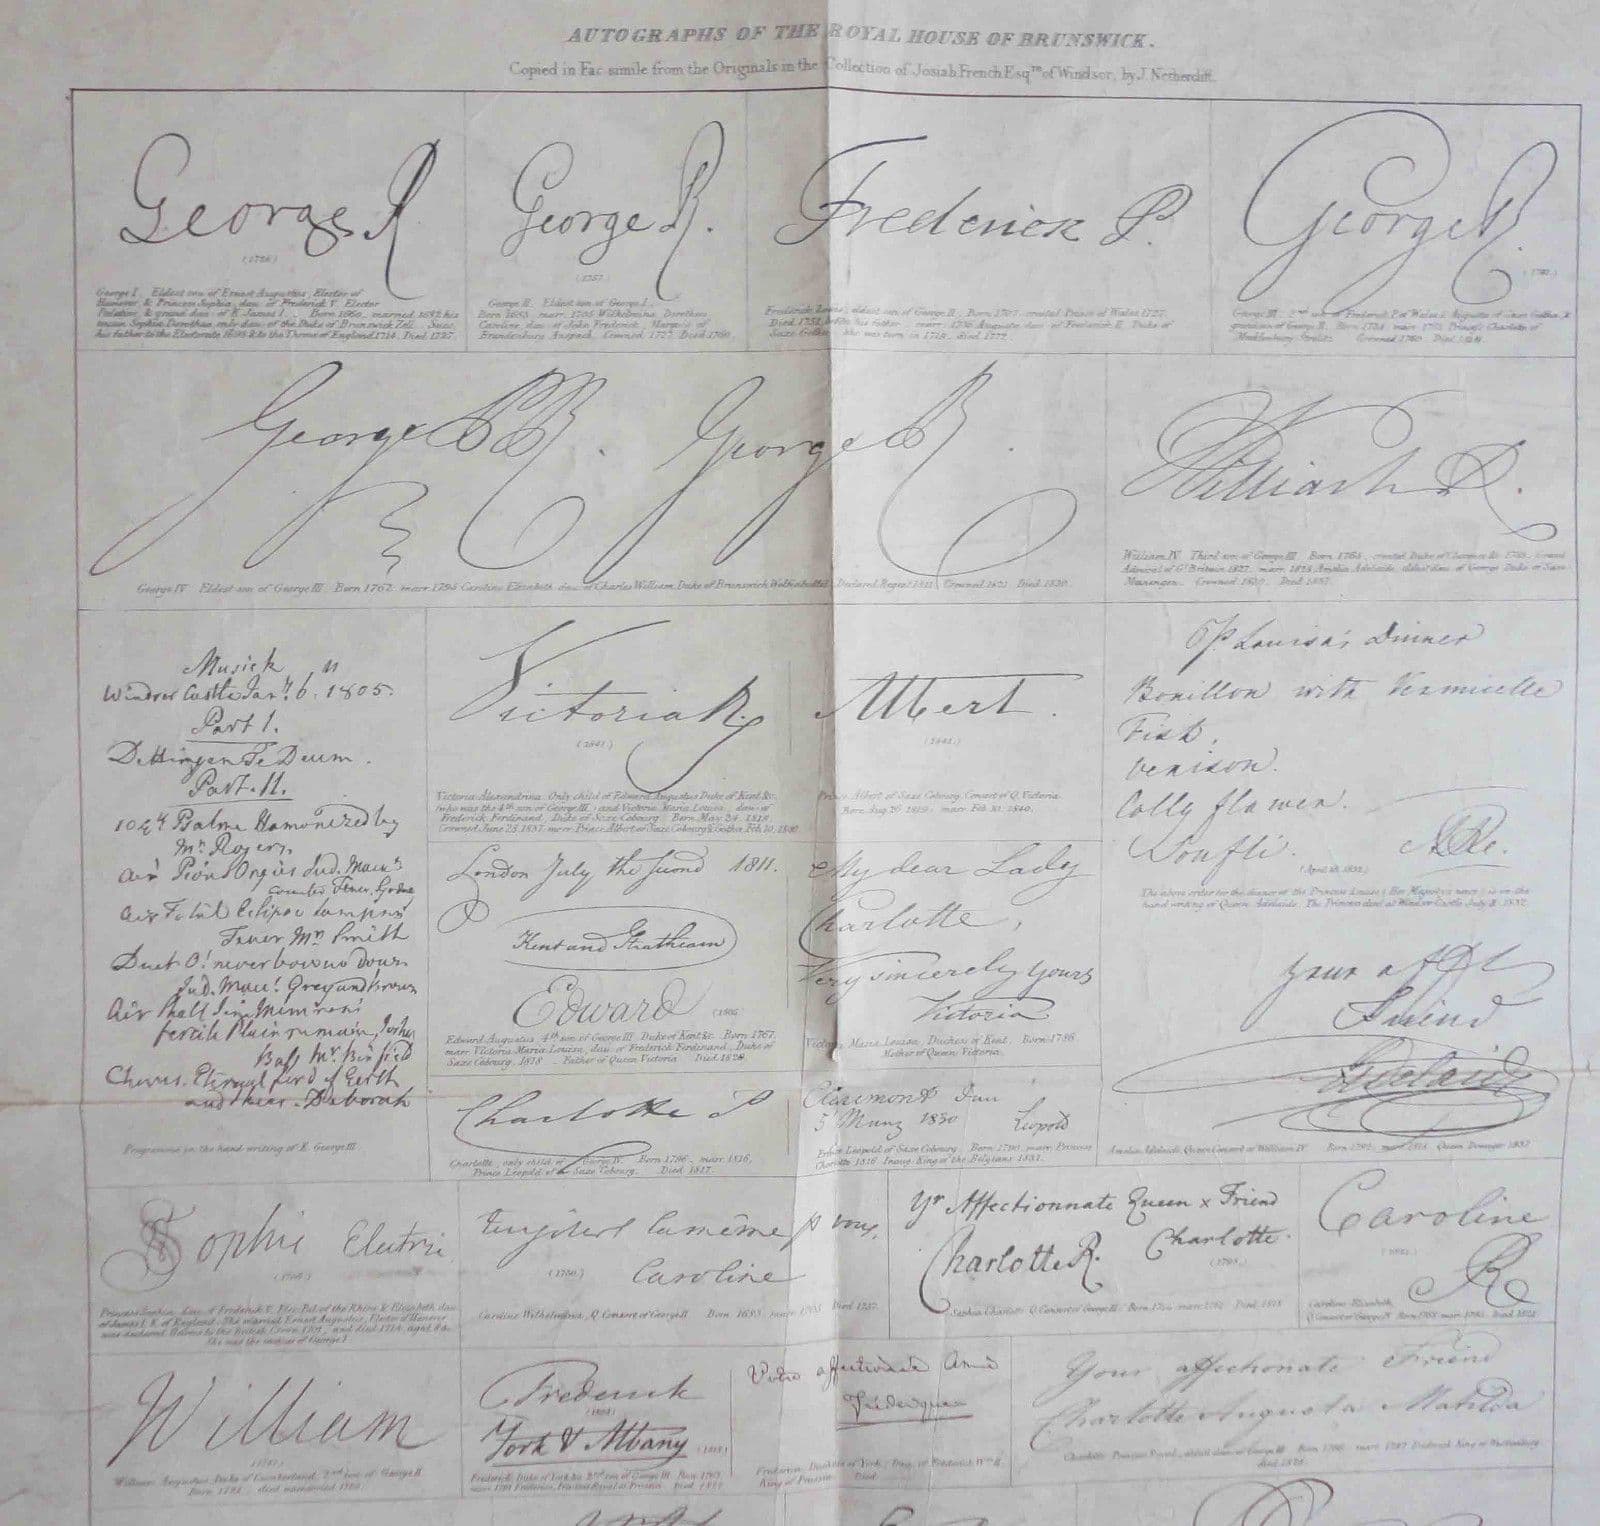 AUTOGRAPHS OF THE ROYAL HOUSE OF BRUNSWICK.
Copied in Fac-simile from the Originals in the Collection of Josiah French Esqre. of Windsor, by J. Netherclift.
George R
George I. Eldest son of Ernest Augustus, Elector of
Hanover, & Princess Sophia, dau. of Frederick V. Elector
Palatine, & grand dau. of K. James I. Born 1660, married 1682 his
cousin Sophia Dorothea, only dau. of the Duke of Brunswick Zell. Succ.
his father to the Electorate 1698 & to the Throne of England 1714. Died 1727.
George R.
(1757)
George II. Eldest son of George I.
Born 1683. marr. 1705 Wilhelmina Dorothea
Caroline, dau. of John Frederick, Margris of
Brandenburg Anspach. Crowned 1727. Died 1760.
Frederick P.
Frederick Louis, eldest son of George II. Born 1707. created Prince of Wales 1727.
Died 1751, before his father. marr. 1736 Augusta dau. of Frederick II. Duke of
Saxe Gotha. She was born in 1719. died 1772.
George R.
George III. 2nd son of Frederick P. of Wales & Augusta of Saxe Gotha, &
grandson of George II. Born 1738. marr. 1761 Princess Charlotte of
Mecklenburg Strelitz. Crowned 1760. Died 1820.
George PR. George R.
George IV. Eldest son of George III. Born 1762. marr. 1795 Caroline Elizabeth dau. of Charles William, Duke of Brunswick Wolfenbuttel. Declared Regent 1811. Crowned 1821. Died 1830.
William R.
William IV. Third son of George III. Born 1765, created Duke of Clarence &c. 1789, Grand
Admiral of Gt. Britain 1827. marr. 1818 Amelia Adelaide, eldest dau. of George Duke of Saxe
Meinengen. Crowned 1830. Died 1837.
Musick
Windsor Castle Jany. 6. 1805.
Part 1.
Dettingen Te Deum.
Part. 11.
104th Psalm Harmonized by
Mr. Rogers.
Air Pious Orgies Jud. Maccs.
Air Total Eclipse Sampson
Mr. Smith
Duet O! never bow we down
Jud. Macc.
Air Shall I in Mamre's
fertile Plain remain, Joshua
Bass Mr. Binfield
Chorus. Eternal Lord of Earth
and hear. Deborah
Programme in the hand writing of K. George III
Victoria R.
(1841)
Victoria Alexandrina. Only child of Edward Augustus Duke of Kent &c.
(who was the 4th son of George III.) and Victoria Maria Louisa, dau. of
Frederick Ferdinand, Duke of Saxe Cobourg. Born May 24. 1819.
Crowned June 28. 1837. marr. Prince Albert of Saxe Cobourg & Gotha Feb. 10. 1840
Albert.
(1841.)
Prince Albert of Saxe Cobourg. Consort of Q. Victoria.
Born Aug 26 1819. marr. Feb. 10. 1840.
Ps. Louisa's Dinner
Bouillon with Vermicelle
Fish.
venison.
Colly flower.
Soufli.
ARe.
The above order for the dinner of the Princess Louise (Her Majesty's niece) is in the
hand writing of Queen Adelaide. The Princess died at Windsor Castle July 1832.
London July the second 1811.
Kent and Strathearn
Edward
Edward Augustus 4th son of George III. Duke of Kent &c. Born 1767.
marr. Victoria Maria Louisa, dau. of Frederick Ferdinand, Duke of
Saxe Cobourg. 1818. Father of Queen Victoria. Died 1820.
My dear Lady
Charlotte,
Very sincerely Yours
Victoria
Victoria Maria Louisa, Duchess of Kent. Born 1786
Mother of Queen Victoria.
your aff
Friend
Adelaide
Amelia Adelaide, Queen Consort of William IV. Born 1792. marr. 1818. Queen Dowager 1837.
Charlotte P
Charlotte, only child of George IV. Born 1796, marr. 1816,
Prince Leopold of Saxe Cobourg. Died 1817.
Claremont Dan
3 Marz 1830 Leopold
Prince Leopold of Saxe Cobourg. Born 1790. marr. Princess
Charlotte 1816. Inaug. King of the Belgians 1831.
Sophie Electrice
Princess Sophia, dau. of Frederick V. Elec. Pal. of the Rhine & Elizabeth dau.
of James I. K. of England. She married Ernest Augustus, Elector of Hanover
was declared Heiress to the British Crown 1701, and died 1714. aged 84.
She was the mother of George I.
p vous.
Caroline
Caroline Wilhelmina, Q. Consort of George II. Born 1683. marr. 1705. Died 1737.
Yr. Affectionnate Queen & Friend
Charlotte R. Charlotte.
Sophia Charlotte Q. Consort of George III. Born 1744. marr. 1761. Died 1818
Caroline
R
Caroline Elizabeth,
Q. Consort of George IV. Born 1768. marr. 1795. Died 1821.
William
William Augustus, Duke of Cumberland, 2nd son of George II
Born 1721. died unmarried 1765.
Frederick
York & Albany
Frederick Duke of York &c. 2nd son of George III. Born 1763.
marr. 1791 Frederica, Princess Royal of Prussia. Died 1827.
Votre affectionée Amie
Fréderique
Frederica Duchess of York, Dau. of Frederick Wm. II.
King of Prussia. Died
Your affectionate Friend
Charlotte Augusta Matilda
Charlotte Princess Royal, eldest dau. of George III. Born 1766. marr. 1797 Frederick King of Wurtemberg.
died 1828.